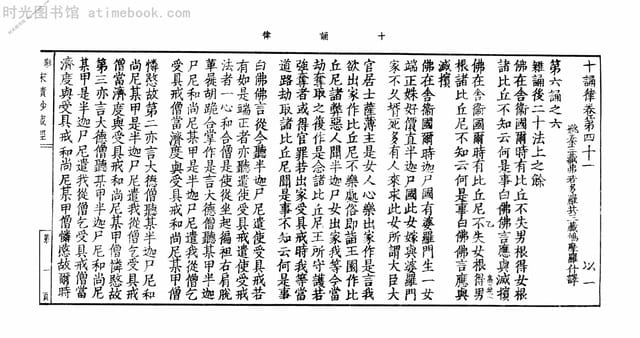 时光图书馆 - atimebook.com
十誦律
十誦律卷第四十一 以一
姚秦三藏弗若多羅共三藏鳩摩羅什譯
第六誦之六
雜誦後二十法上之餘
佛在舍衛國爾時有比丘不失男根得女根
諸比丘不知云何是事白佛佛言應與滅擯
佛在舍衛國爾時有比丘尼不失女根得男
根諸比丘尼不知云何是事白佛佛言應與
滅擯
佛在舍衛國爾時迦尸國有婆羅門生一女
端正姝好價直半迦尸國此女嫁與婆羅門
家不久壻死多有人來求此女所謂大臣大
官居士薩薄主是女人心樂出家作是言我
欲出家作比丘尼不樂處俗即詣王園作比
丘尼諸弊惡人聞半迦尸女出家我等今當
劫奪取之復作是念諸比丘尼王所守護若
強奪者或得官罪若出家受具戒時我等當
道路劫取諸比丘尼聞是事不知云何是事
白佛佛言從今聽半迦尸尼遣使受具戒若
有如是端正者亦聽遣使受具戒遣使受戒
法者一心和合僧是使從坐起偏袒右肩脫
革屣胡跪合掌作是言大德僧聽某甲半迦
尸尼和尚尼某甲是半迦尸尼遣我從僧乞
受具戒僧當濟度與受具戒和尚尼某甲僧
憐愍故第二亦言大德僧聽某甲半迦尸尼和
尚尼某甲是半迦尸尼遣我從僧乞受具戒
僧當濟度與受具戒和尚尼某甲僧憐愍故
第三亦言大德僧聽某甲半迦尸尼和尚尼
某甲是半迦尸尼遣我從僧乞受具戒僧當
濟度與受具戒和尚尼某甲僧憐愍故爾時
影印宋磧砂藏經